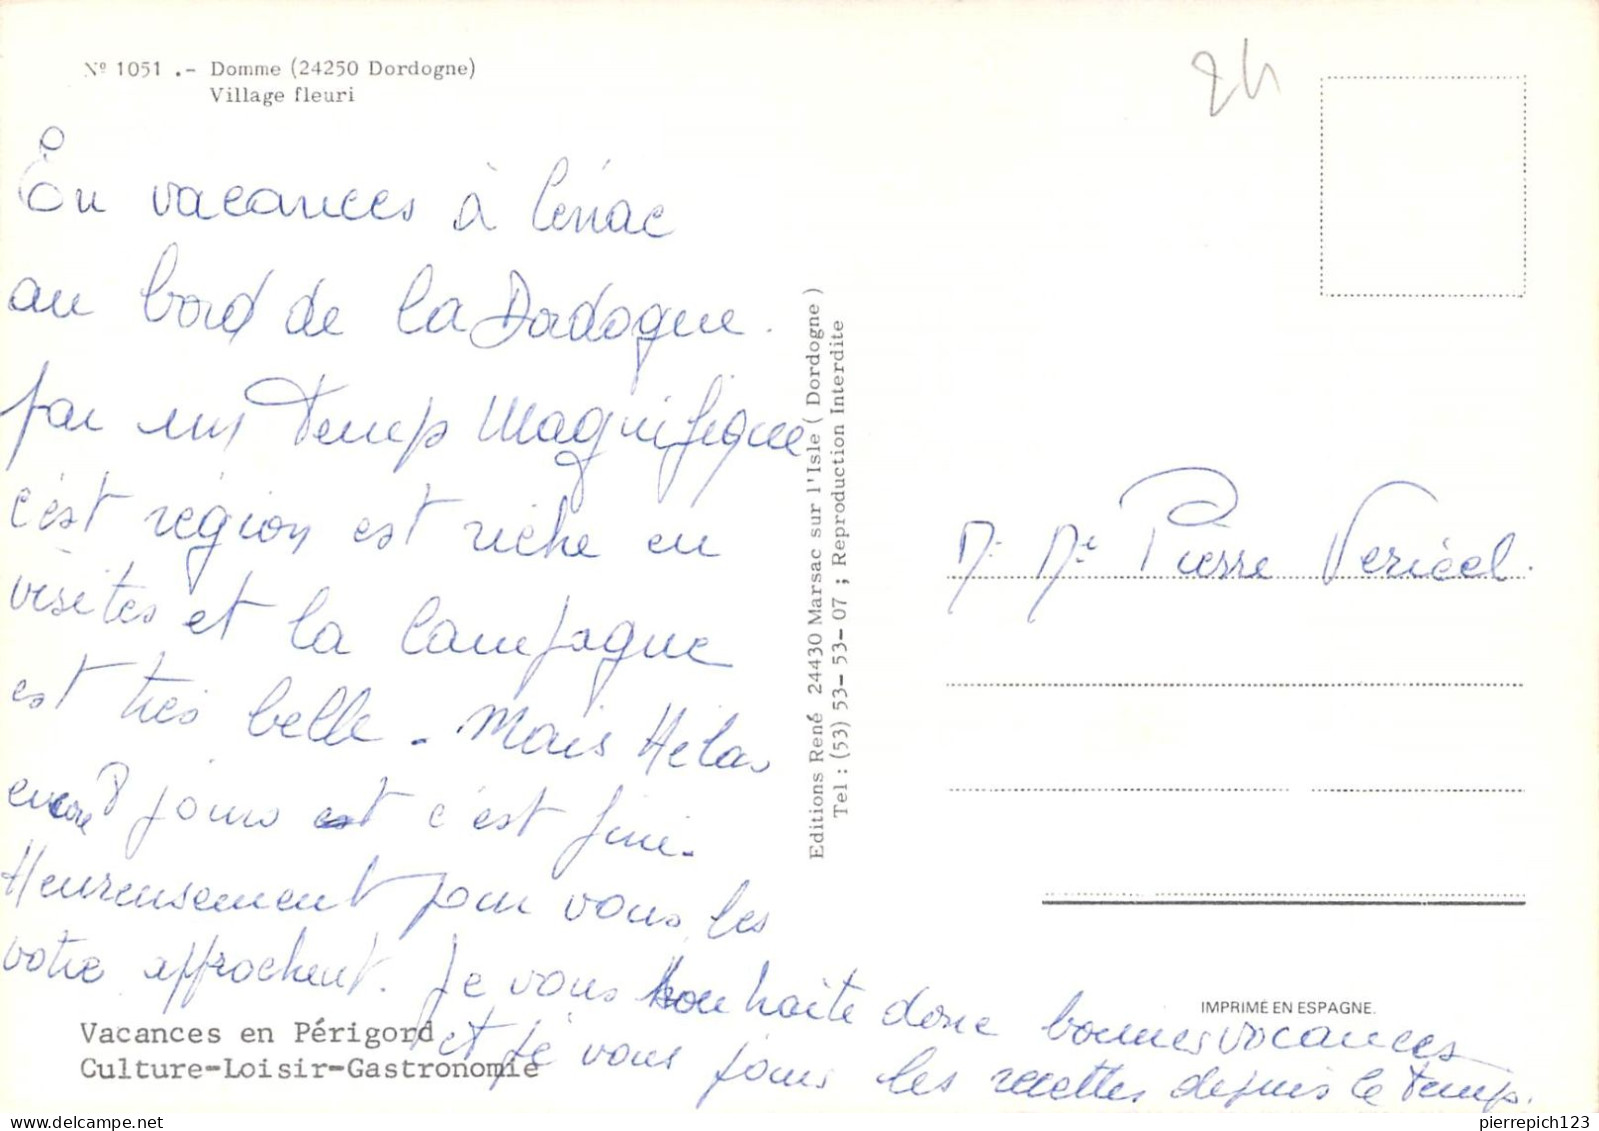 Nº 1051 .- Domme (24250 Dordogne)
Village fleuri
24
En vacances à Cénac
au bord de la Dordogne.
par un temps magnifique
c'est région est riche en
visites et la campagne
est très belle - Mais Hélas
encore 8 jours et c'est fini.
Heureusement pour vous les
votre approchent. Je vous souhaite donc bonnes vacances
et je vous joins les recettes depuis le temps.
Vacances en Périgord
Culture-Loisir-Gastronomie
Editions René 24430 Marsac sur l'Isle ( Dordogne )
Tel : (53) 53-53-53-07 ; Reproduction Interdite
M. Me Pierre Vericel.
IMPRIMÉ EN ESPAGNE.
pierrepich123